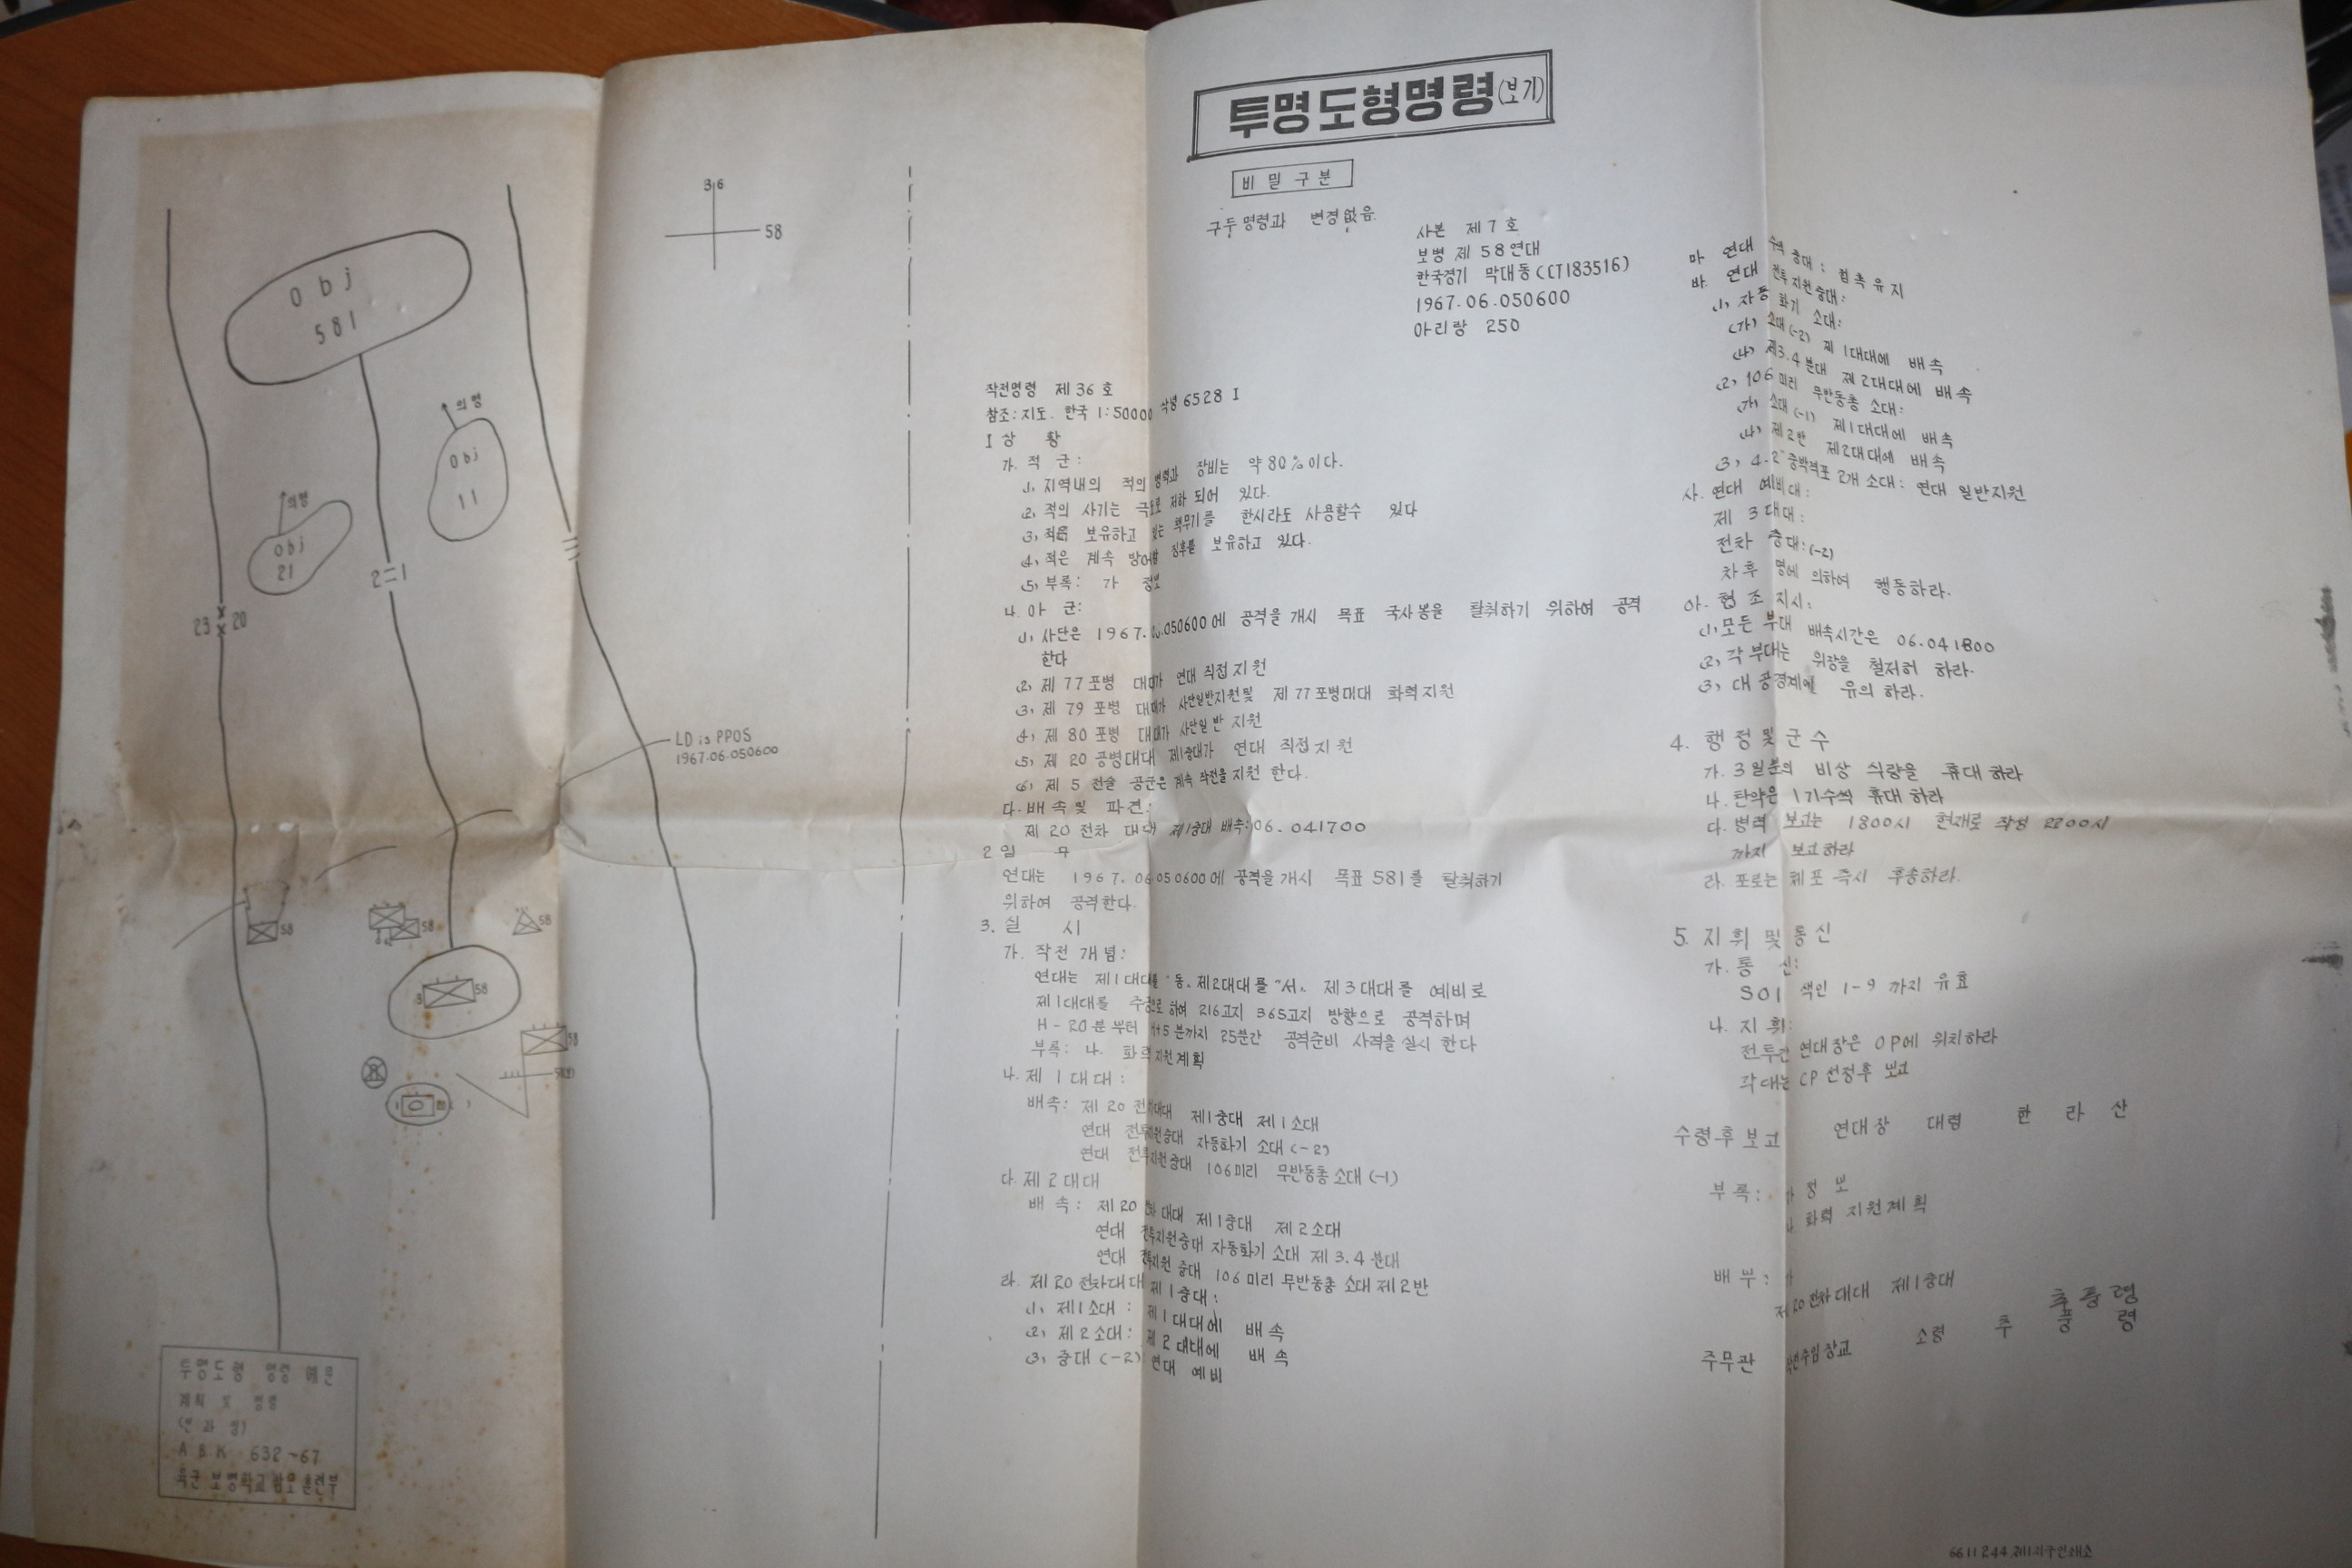 투명도형명령(보기)
비밀구분
구두명령과 변경없음.
사본 제7호
보병 제58연대
한국경기 막대동(CT183516)
1967.06.050600
아리랑 250
작전명령 제36호
참조: 지도. 한국 1:50000 6528 I
I 상 황
가. 적 군:
(1) 지역내의 적의 병력과 장비는 약 80%이다.
(2) 적의 사기는 극도로 저하 되어 있다.
(3) 적은 보유하고 있는 핵무기를 한시라도 사용할수 있다
(4) 적은 계속 방어할 징후를 보유하고 있다.
(5) 부록: 가 정보
나. 아 군:
(1) 사단은 1967.06.050600에 공격을 개시 목표 국사봉을 탈취하기 위하여 공격
한다
(2) 제77포병 대대가 연대 직접지원
(3) 제79포병 대대가 사단일반지원및 제77포병대대 화력지원
(4) 제80포병 대대가 사단일반 지원
(5) 제20공병대대 제1중대가 연대 직접지원
(6) 제5전술 공군은 계속 작전을 지원 한다.
다. 배속및 파견:
제20전차 대대 제1중대 배속: 06.041700
2 임 무
연대는 1967.06.050600에 공격을 개시 목표 581를 탈취하기
위하여 공격한다.
3. 실 시
가. 작전 개념:
연대는 제1대대를 "동, 제2대대를 "서, 제3대대를 예비로
제1대대를 주공으로 하여 216고지 365고지 방향으로 공격하며
H-20분 부터 H+5분까지 25분간 공격준비 사격을 실시 한다
부록: 나. 화력지원계획
나. 제1대대:
배속: 제20전차대대 제1중대 제1소대
연대 전투지원중대 자동화기 소대(-2)
연대 전투지원중대 106미리 무반동총소대(-1)
다. 제2대대
배속: 제20전차대대 제1중대 제2소대
연대 전투지원중대 자동화기 소대 제3.4분대
연대 전투지원 중대 106미리 무반동총 소대 제2반
라. 제20전차대대 제1중대:
(1) 제1소대: 제1대대에 배속
(2) 제2소대: 제2대대에 배속
(3) 중대(-2) 연대 예비
마. 연대 수색 중대: 접촉유지
바. 연대 전투지원중대:
(1) 자동 화기 소대:
(가) 소대(-2) 제1대대에 배속
(나) 제3.4분대 제2대대에 배속
(2) 106미리 무반동총 소대:
(가) 소대(-1) 제1대대에 배속
(나) 제2반 제2대대에 배속
(3) 4.2"중박격포 2개 소대: 연대 일반지원
사. 연대 예비대:
제3대대:
전차 중대:(-2)
차후 명에 의하여 행동하라.
아. 협조지시:
(1) 모든 부대 배속시간은 06.041800
(2) 각 부대는 위장을 철저히 하라.
(3) 대공경계에 유의 하라.
4. 행정및군수
가. 3일분의 비상 식량을 휴대하라
나. 탄약은 1기수씩 휴대 하라
다. 병력 보고는 1800시 현재로 작성 2200시
까지 보고하라
라. 포로는 체포 즉시 후송하라.
5. 지휘및통신
가. 통 신:
SOI 색인 1-9까지 유효
나. 지휘:
전투간 연대장은 OP에 위치하라
각대는 CP선정후 보고
수령후보고 연대장 대령 한 라 산
부록: 가 정보
나 화력 지원계획
배부: 가
제20전차대대 제1중대
추풍령
주무관 작전주임장교 소령 추 풍 령
6611244 제1지구인쇄소
36
58
Obj
581
의명
Obj
11
의명
Obj
21
2 1
23 20
LD is PPOS
1967.06.050600
58
58
58
3 58
58
투명도형 명령 예문
ABK 632-67
육군 보병학교